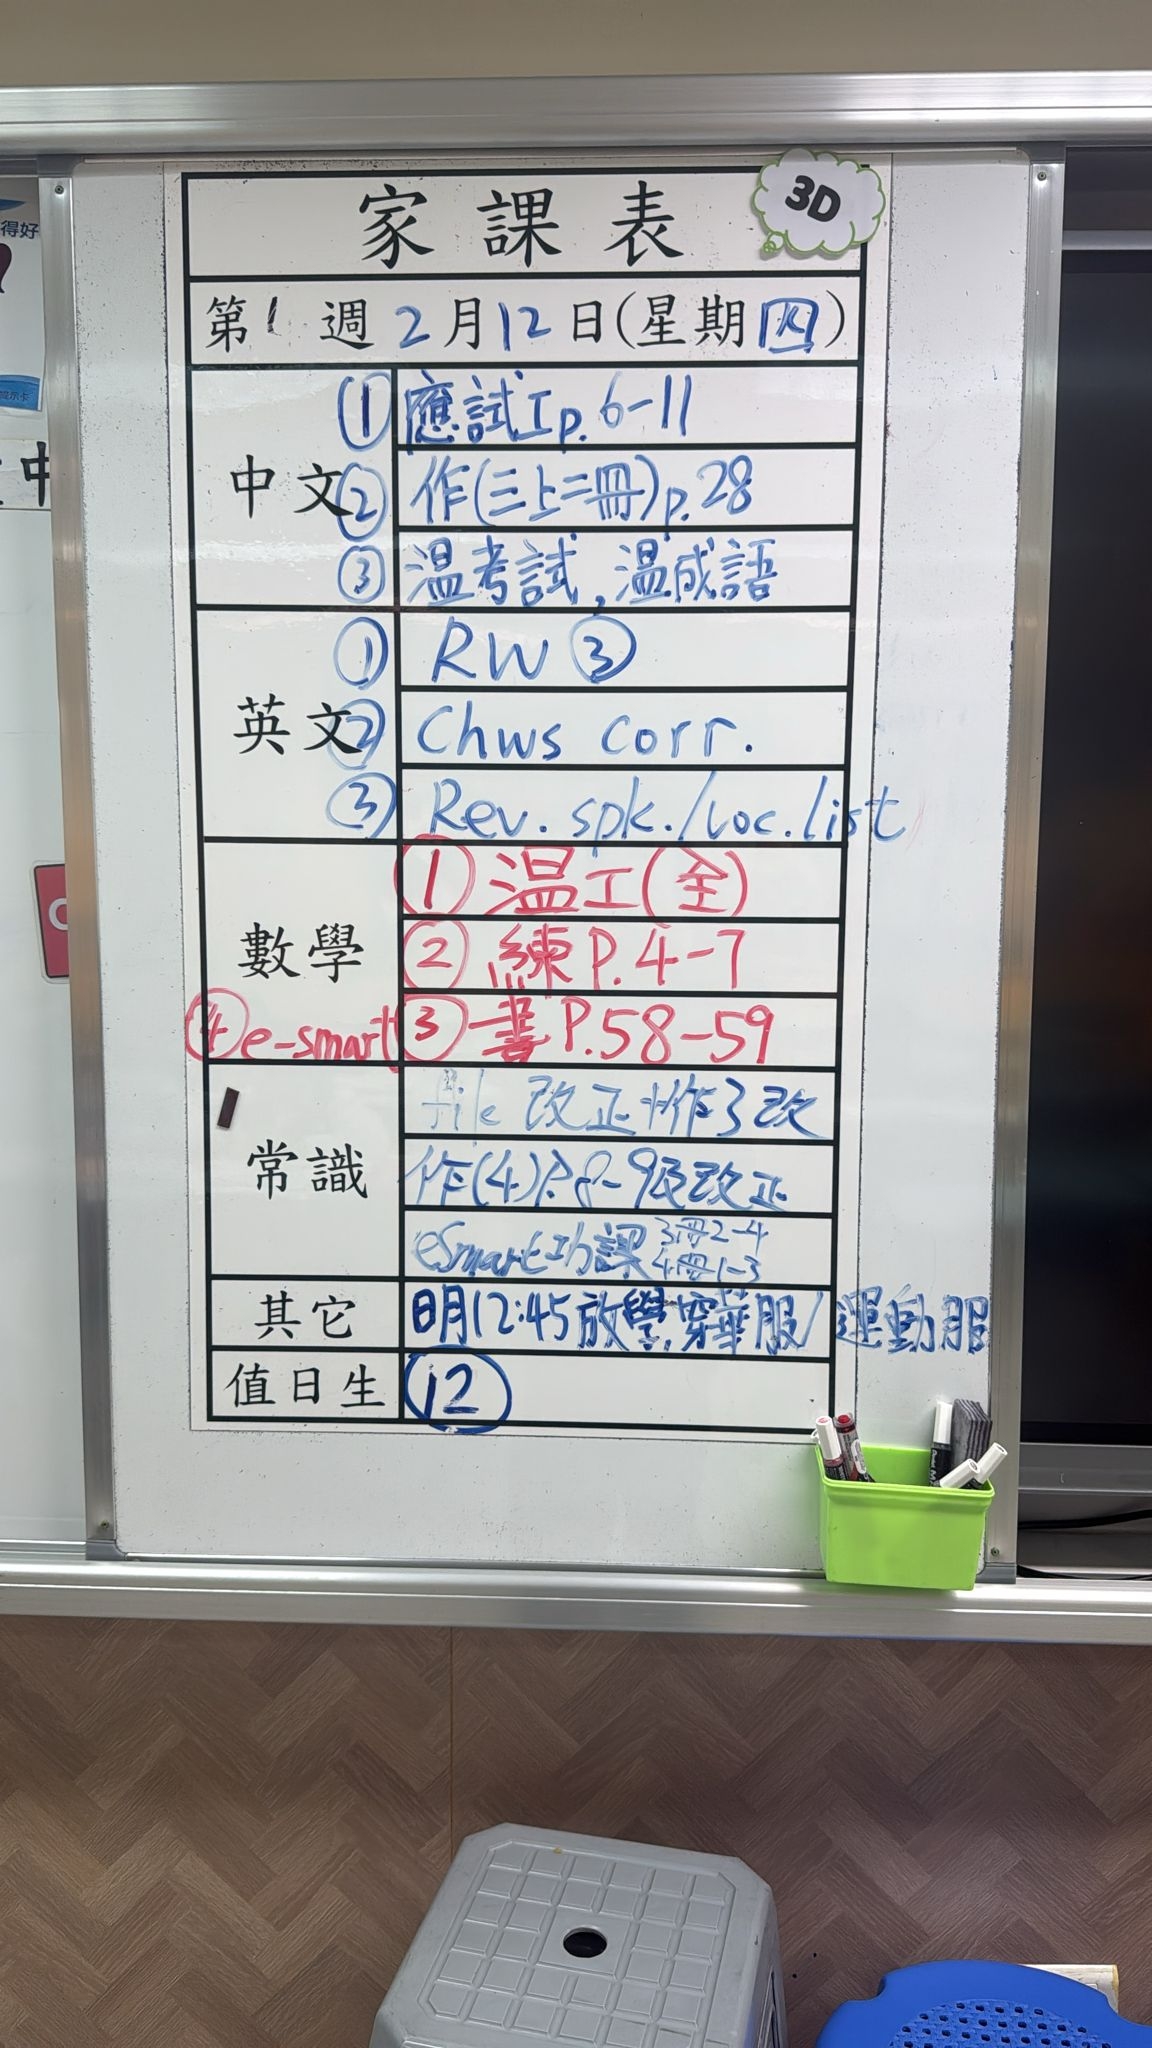 家課表
3D
第1週2月12日(星期四)
中文
① 應試工p.6-11
② 作(三上二冊)p.28
③ 温考試,温成語
英文
① RW③
② Chws corr.
③ Rev. spk./voc.list
數學
① 温工(全)
② 練P.4-7
③ 書P.58-59
④ e-smart
常識
file 改正+作3改
作(4)P.8-9及改正
eSmart功課 3冊2-4
4冊1-3
其它
明12:45放學,穿華服/運動服
值日生
⑫
得好
中